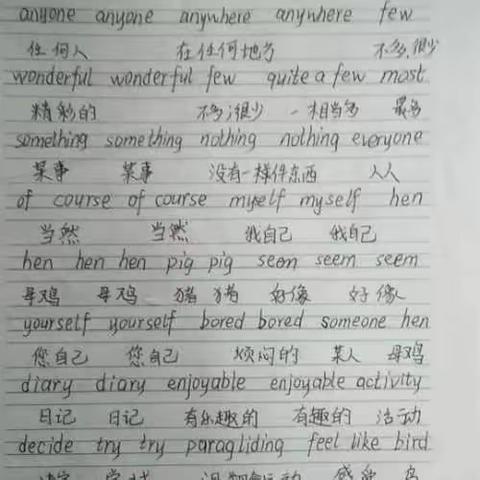 anyone anyone anywhere anywhere few
任何人 在任何地方 不多,很少
wonderful wonderful few quite a few most
精彩的 不多;很少 一相当多 最多
something something nothing nothing everyone
某事 某事 没有一样件东西 人人
of course of course myself myself hen
当然 当然 我自己 我自己
hen hen hen pig pig seem seem seem
母鸡 母鸡 猪 猪 好像 好像
yourself yourself bored bored someone hen
您自己 您自己 烦闷的 某人 母鸡
diary diary enjoyable enjoyable activity
日记 日记 有乐趣的 有趣的 活动
decide try try paragliding feel like bird